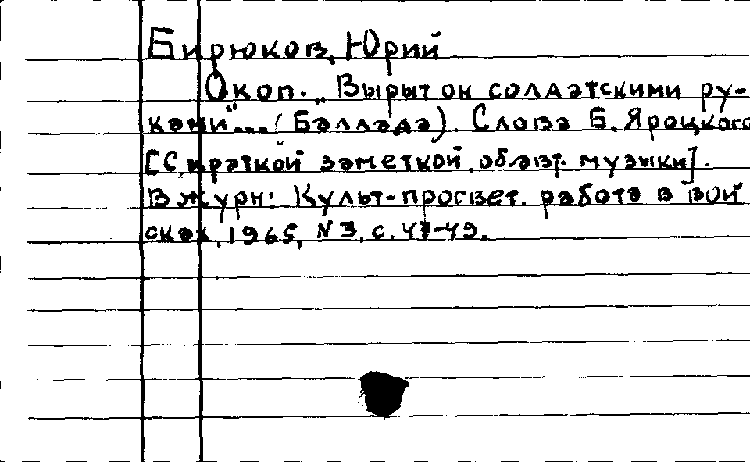 Бирюков, Юрий
Окоп. „Вырыт он солдатскими ру-
ками“... (Баллада). Слова Б. Яроцкого
[С краткой заметкой об авт. музыки].
В журн: Культ-просвет. работа в вой
сках, 1965, N 3, с. 47-49.